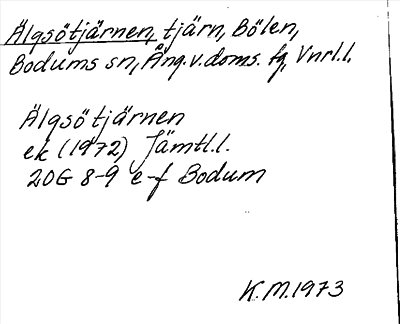 Älgsötjärnen, tjärn, Bölen,
Bodums sn, Ång.v.doms. fg, Vnrl.l.
Älgsötjärnen
ek (1972) Jämtl.l.
20G 8-9 e-f Bodum
K.M.1973